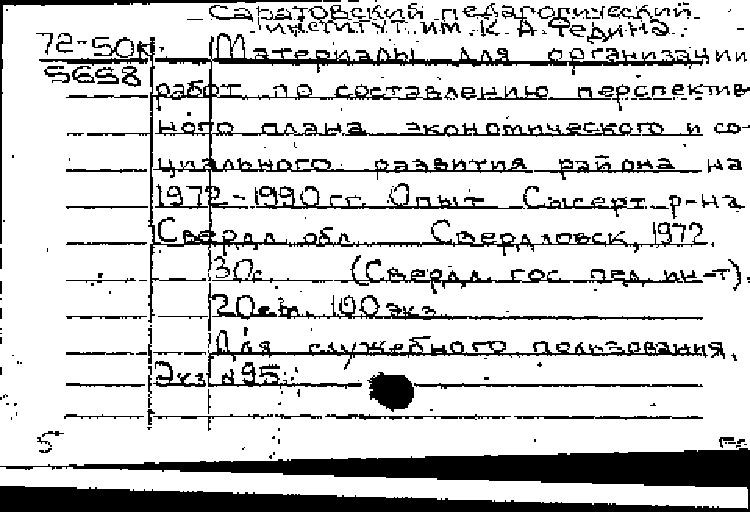 Саратовский педагогический
институт им. К. А. Федина.
72-50к. Материалы для организации
5658 работ по составлению перспектив-
ного плана экономического и со-
циального развития района на
1972-1990 гг. Опыт Сысерт. р-на
Свердл. обл. Свердловск, 1972.
30с. (Свердл. гос. пед. ин-т).
20см. 100 экз.
Для служебного пользования.
Экз. №95.
5